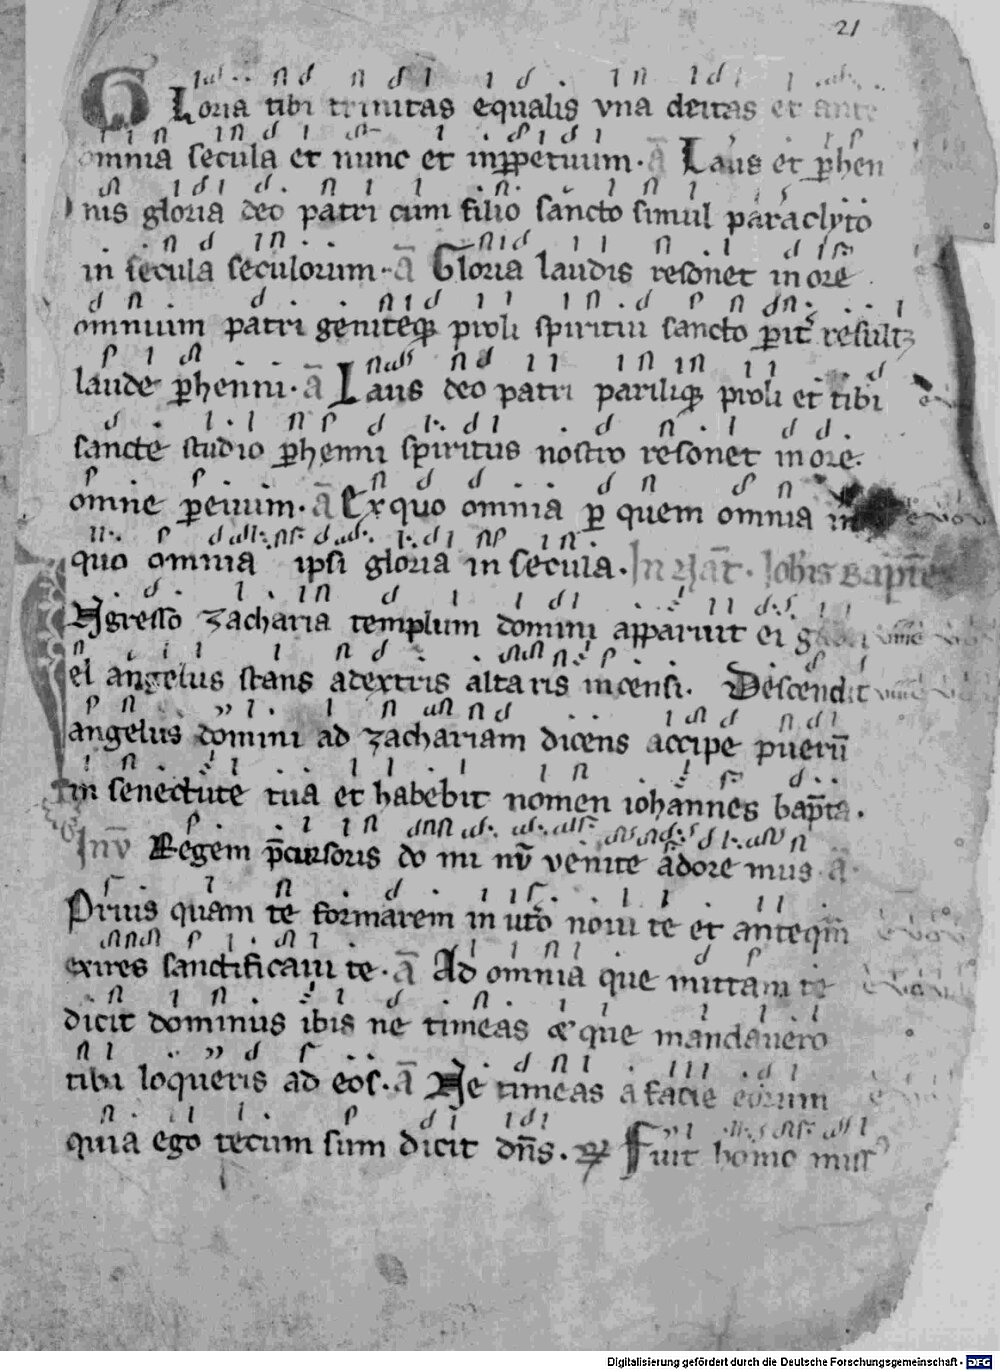 21
Gloria tibi trinitas equalis vna deitas et ante
omnia secula et nunc et inꝑpetuum. ā Laus et ꝑhen
nis gloria deo patri cum filio sancto simul paraclyto
in secula seculorum. ā Gloria laudis resonet in ore
omnium patri geniteqꝫ proli spiritui sancto ꝑit͛ resultꝫ
laude ꝑhenni. ā Laus deo patri pariliqꝫ proli et tibi
sancte studio ꝑhenni spiritus nostro resonet in ore.
omne ꝑeuum. ā Ex quo omnia ꝑ quem omnia in
quo omnia ipsi gloria in secula. In Nat̄. Iohīs Bapte
Ingresso zacharia templum domini apparuit ei gabri
el angelus stans adextris altaris incensi. Descendit
angelus domini ad zachariam dicens accipe pueru̅
in senectute tua et habebit nomen iohannes bap̅ta.
Inv̄ Regem p̅cursoris do mi nū venite adore mus ā
Prius quam te formarem in ut͛o noui te et anteqm̅
exires sanctificaui te. ā Ad omnia que mittam te
dicit dominus ibis ne timeas & que mandauero
tibi loqueris ad eos. ā Ne timeas a facie eorum
quia ego tecum sum dicit dn̄s. ꝶ Fuit homo miss⁹
Digitalisierung gefördert durch die Deutsche Forschungsgemeinschaft - DFG